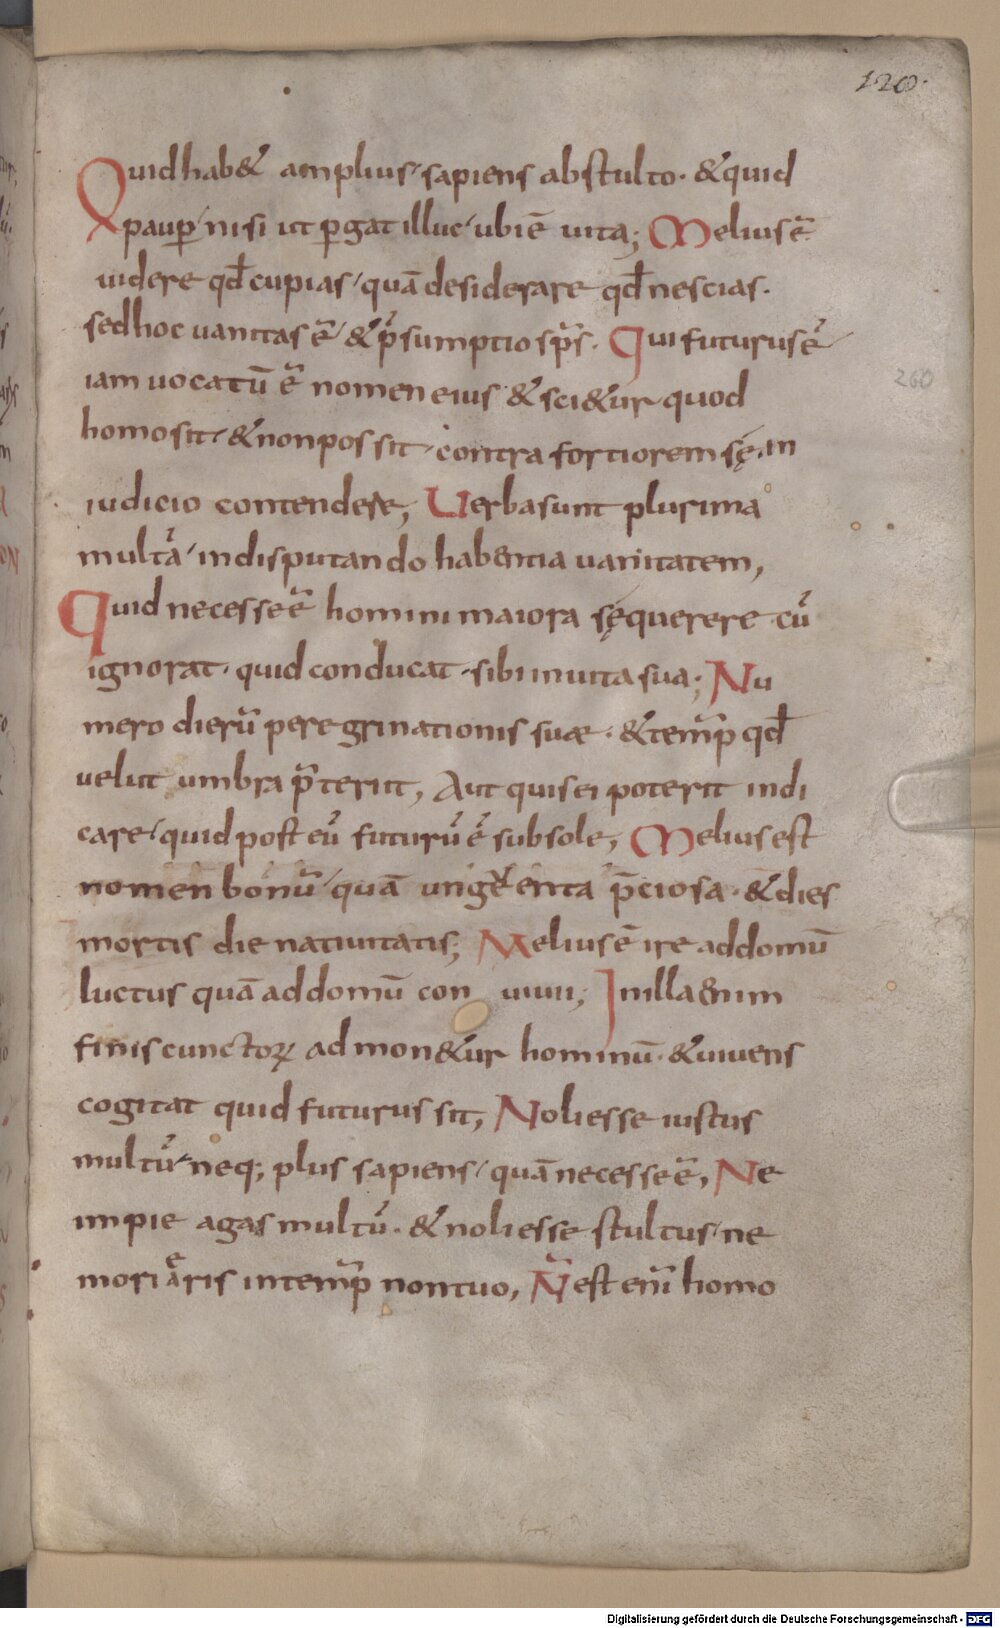 120.
Quid hab& amplius, sapiens abstulto. &quid
paup̄, nisi ut p̄gat illuc, ubi ē uita; Melius ē
uidere qd̄ cupias, quā desiderare qd̄ nescias.
sed hoc uanitas ē, & p̄sumptio sp̄s. Qui futurus ē
iam uocatū ē nomen eius & sci&ur quod
homo sit, & non possit, contra fortiorem sę, in
iudicio contendere; Uerba sunt plurima
multā, in disputando habentia uanitatem,
Quid necesse ē homini maiora sę querere cū
ignorat. quid conducat, sibi in uita sua; Nu
mero dierū peregrinationis suæ. & temp̄ qd̄
uelut umbra p̄terit, Aut quis ei poterit indi
care, quid post eū futurū ē sub sole; Melius est
nomen bonū, quā ungenta p̄ciosa. & dies
mortis die natiuitatis; Melius ē ire ad domū
luctus quā ad domū con uiuii; In illa enim
finis cunctoꝝ admon&ur hominū. & uiuens
cogitat quid futurus sit, Noli esse iustus
multū, neq; plus sapiens, quā necesse ē, Ne
impie agas multū. & noli esse stultus, ne
moriaris in temp̄ non tuo, N̄ est enī homo
260
Digitalisierung gefördert durch die Deutsche Forschungsgemeinschaft - DFG